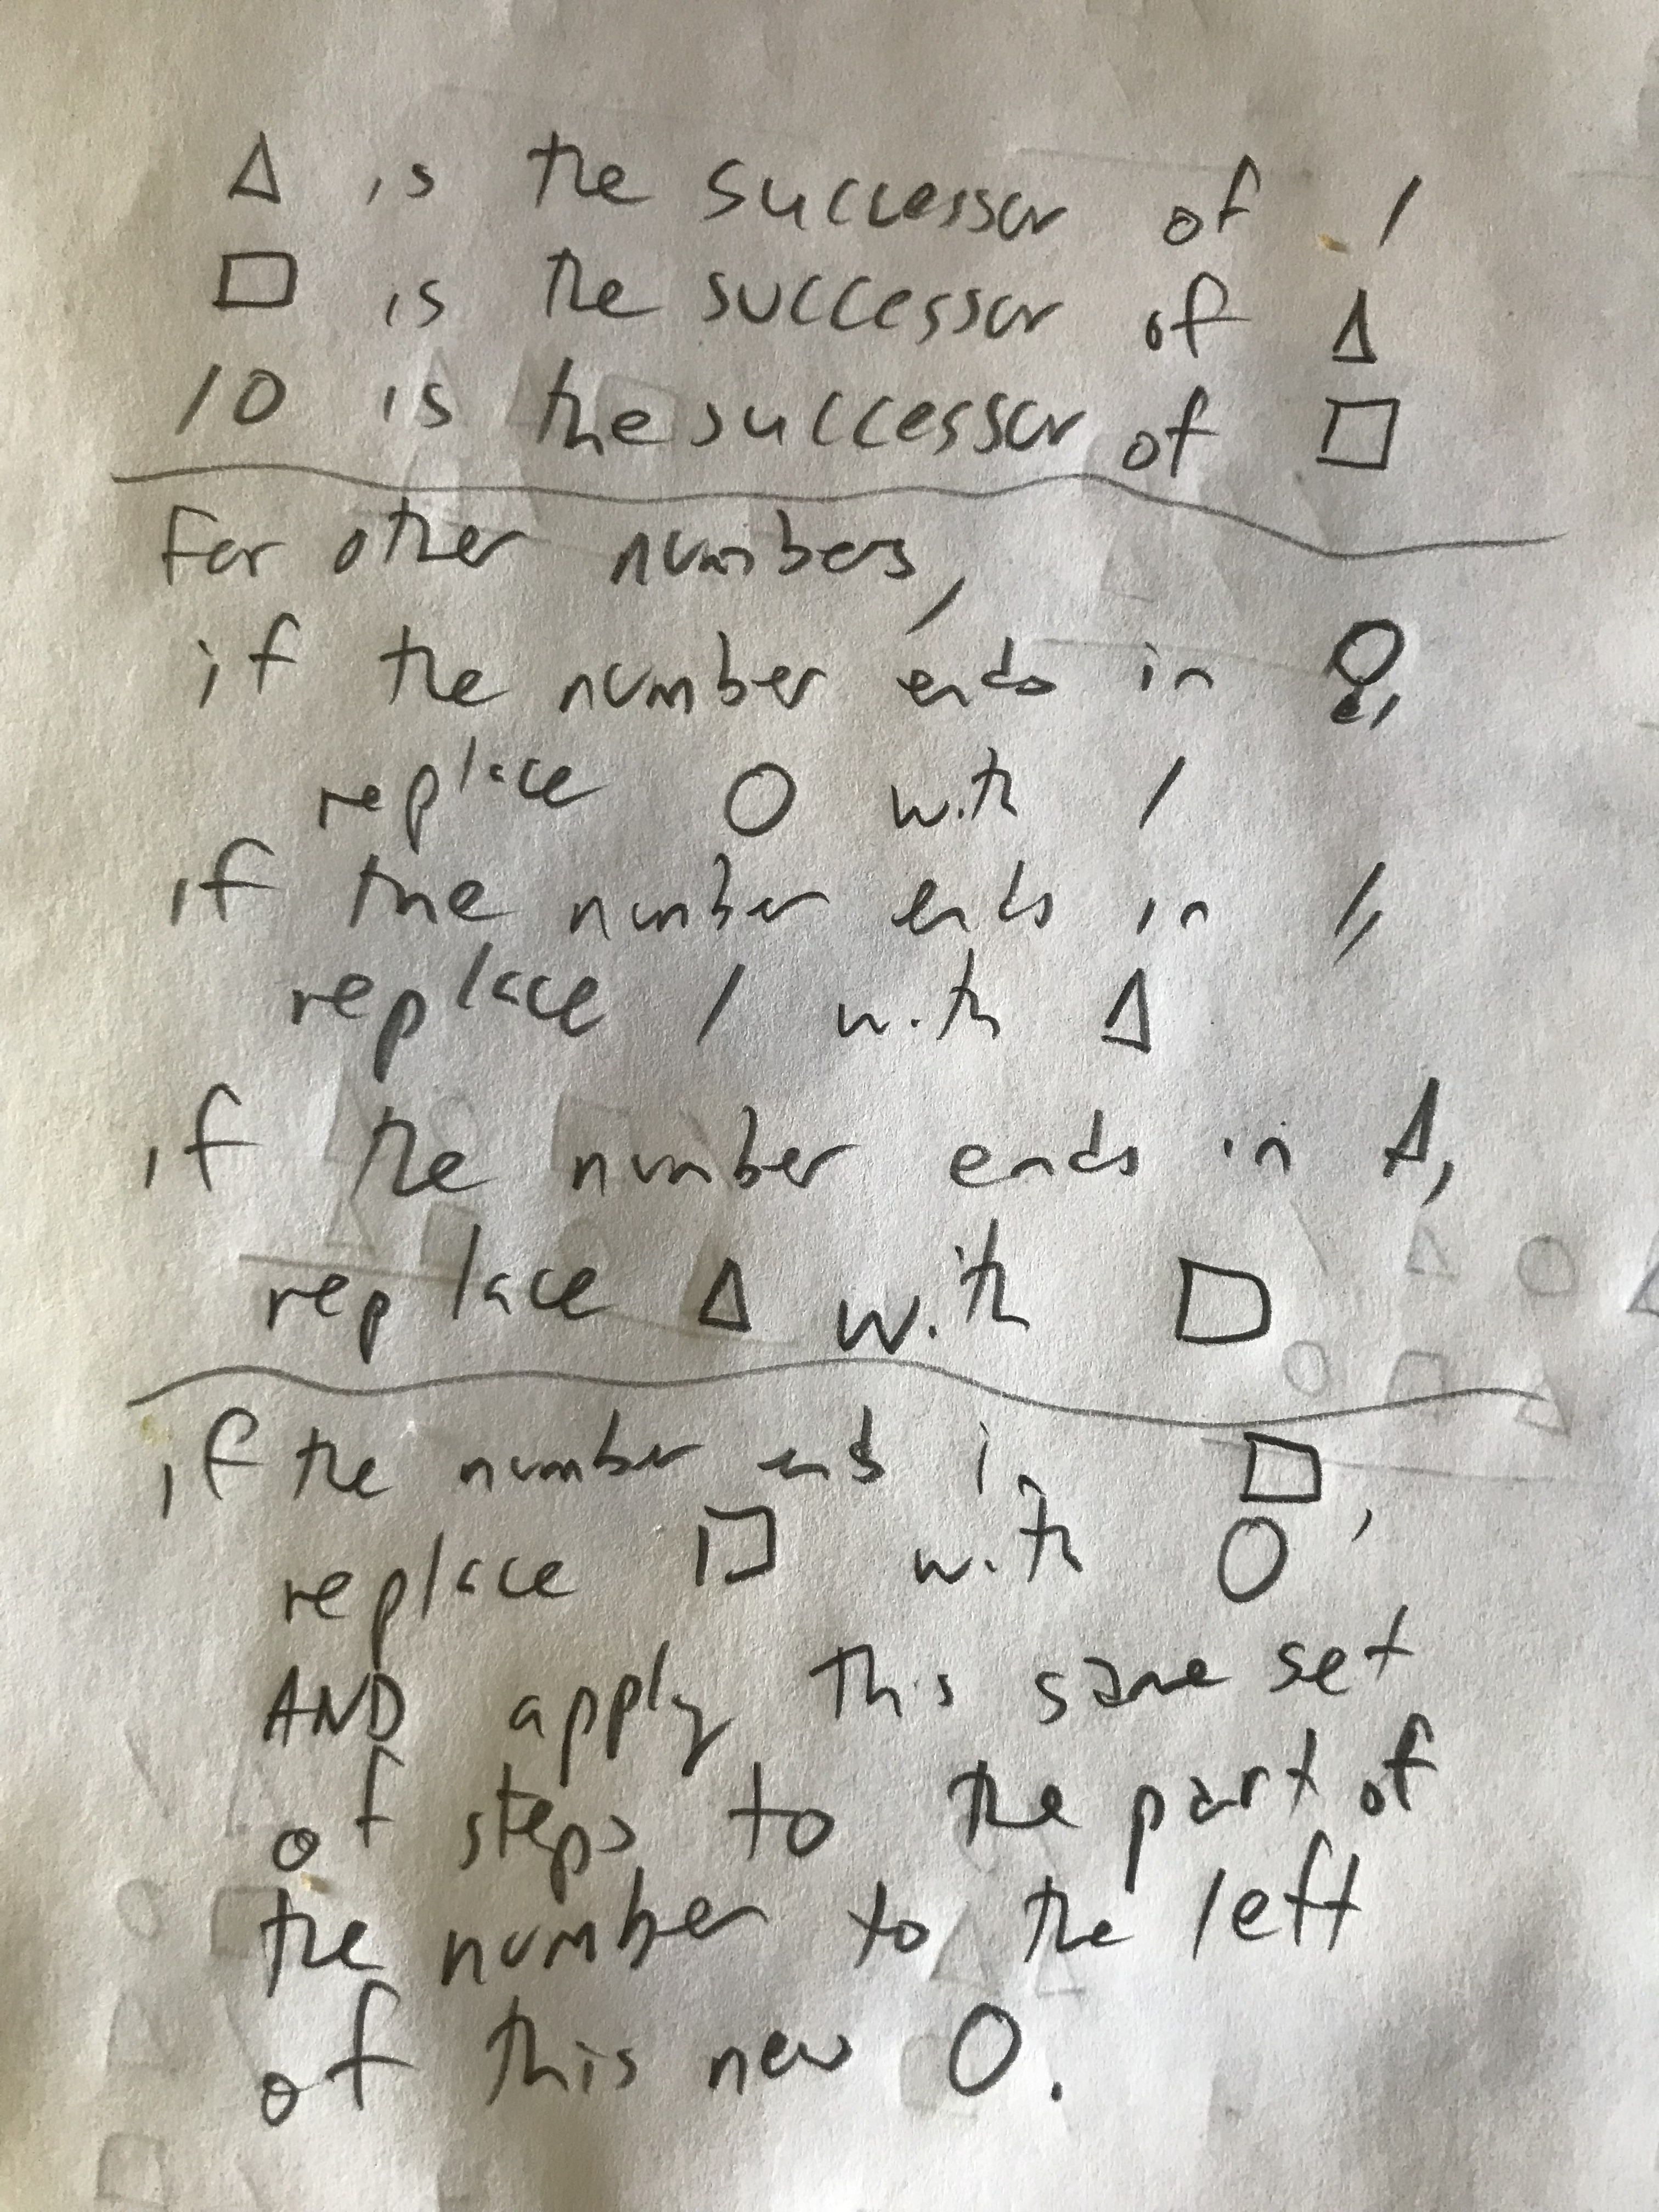 Δ is the successor of /
□ is the successor of Δ
/0 is the successor of □
For other numbers,
if the number ends in O,
replace O with /
if the number ends in /,
replace / with Δ
if the number ends in Δ,
replace Δ with □
if the number ends in □,
replace □ with O
AND apply this same set
of steps to the part of
the number to the left
of this new O.